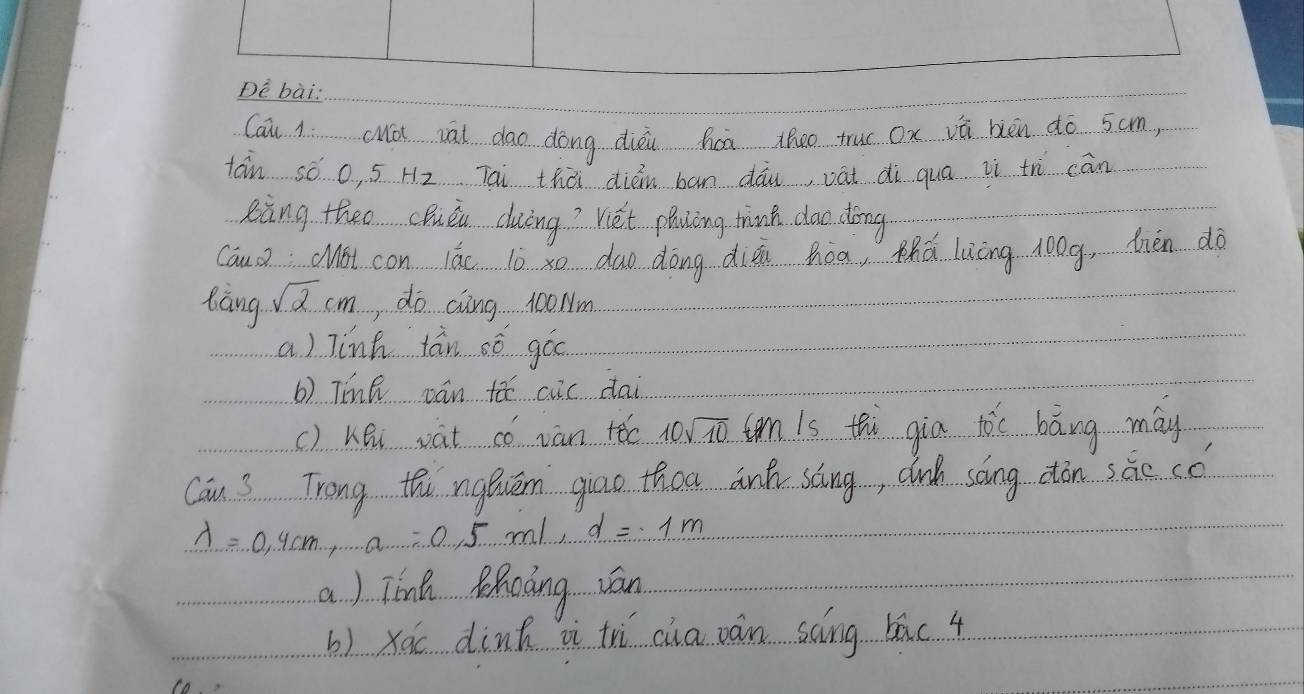 Đề bài:
Câu 1: Một vật dao động điều hoà theo trục Ox với biên độ 5cm,
tần số 0,5 Hz. Tại thời điểm ban đầu, vật đi qua vị trí cân
bằng theo chiều dương? Viết phương trình dao động
Câu 2: Một con lắc lò xo dao động điều hòa, khối lượng 100g, biên độ
bằng √2 cm, độ cứng 100 N/m
a) Tính tần số góc
b) Tính vận tốc cực đại
c) Khi vật có vận tốc 10√10 cm/s thì gia tốc bằng mấy
Câu 3 Trong thí nghiệm giao thoa ánh sáng, ánh sáng đơn sắc có
λ = 0,4cm, a = 0,5 ml, d = 1m
a) Tính khoảng vân
b) Xác định vị trí của vân sáng bậc 4